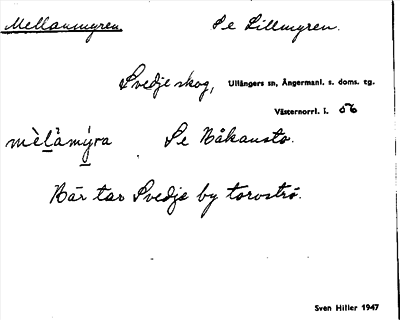 Mellanmyren. Se Lillmyren.
Svedje skog, Ullångers sn, Ångermanl. s. doms. tg.
Västernorrl. l. 56
mèlåmýra Se Båkausto.
Här tar Svedje by torvströ.
Sven Hiller 1947